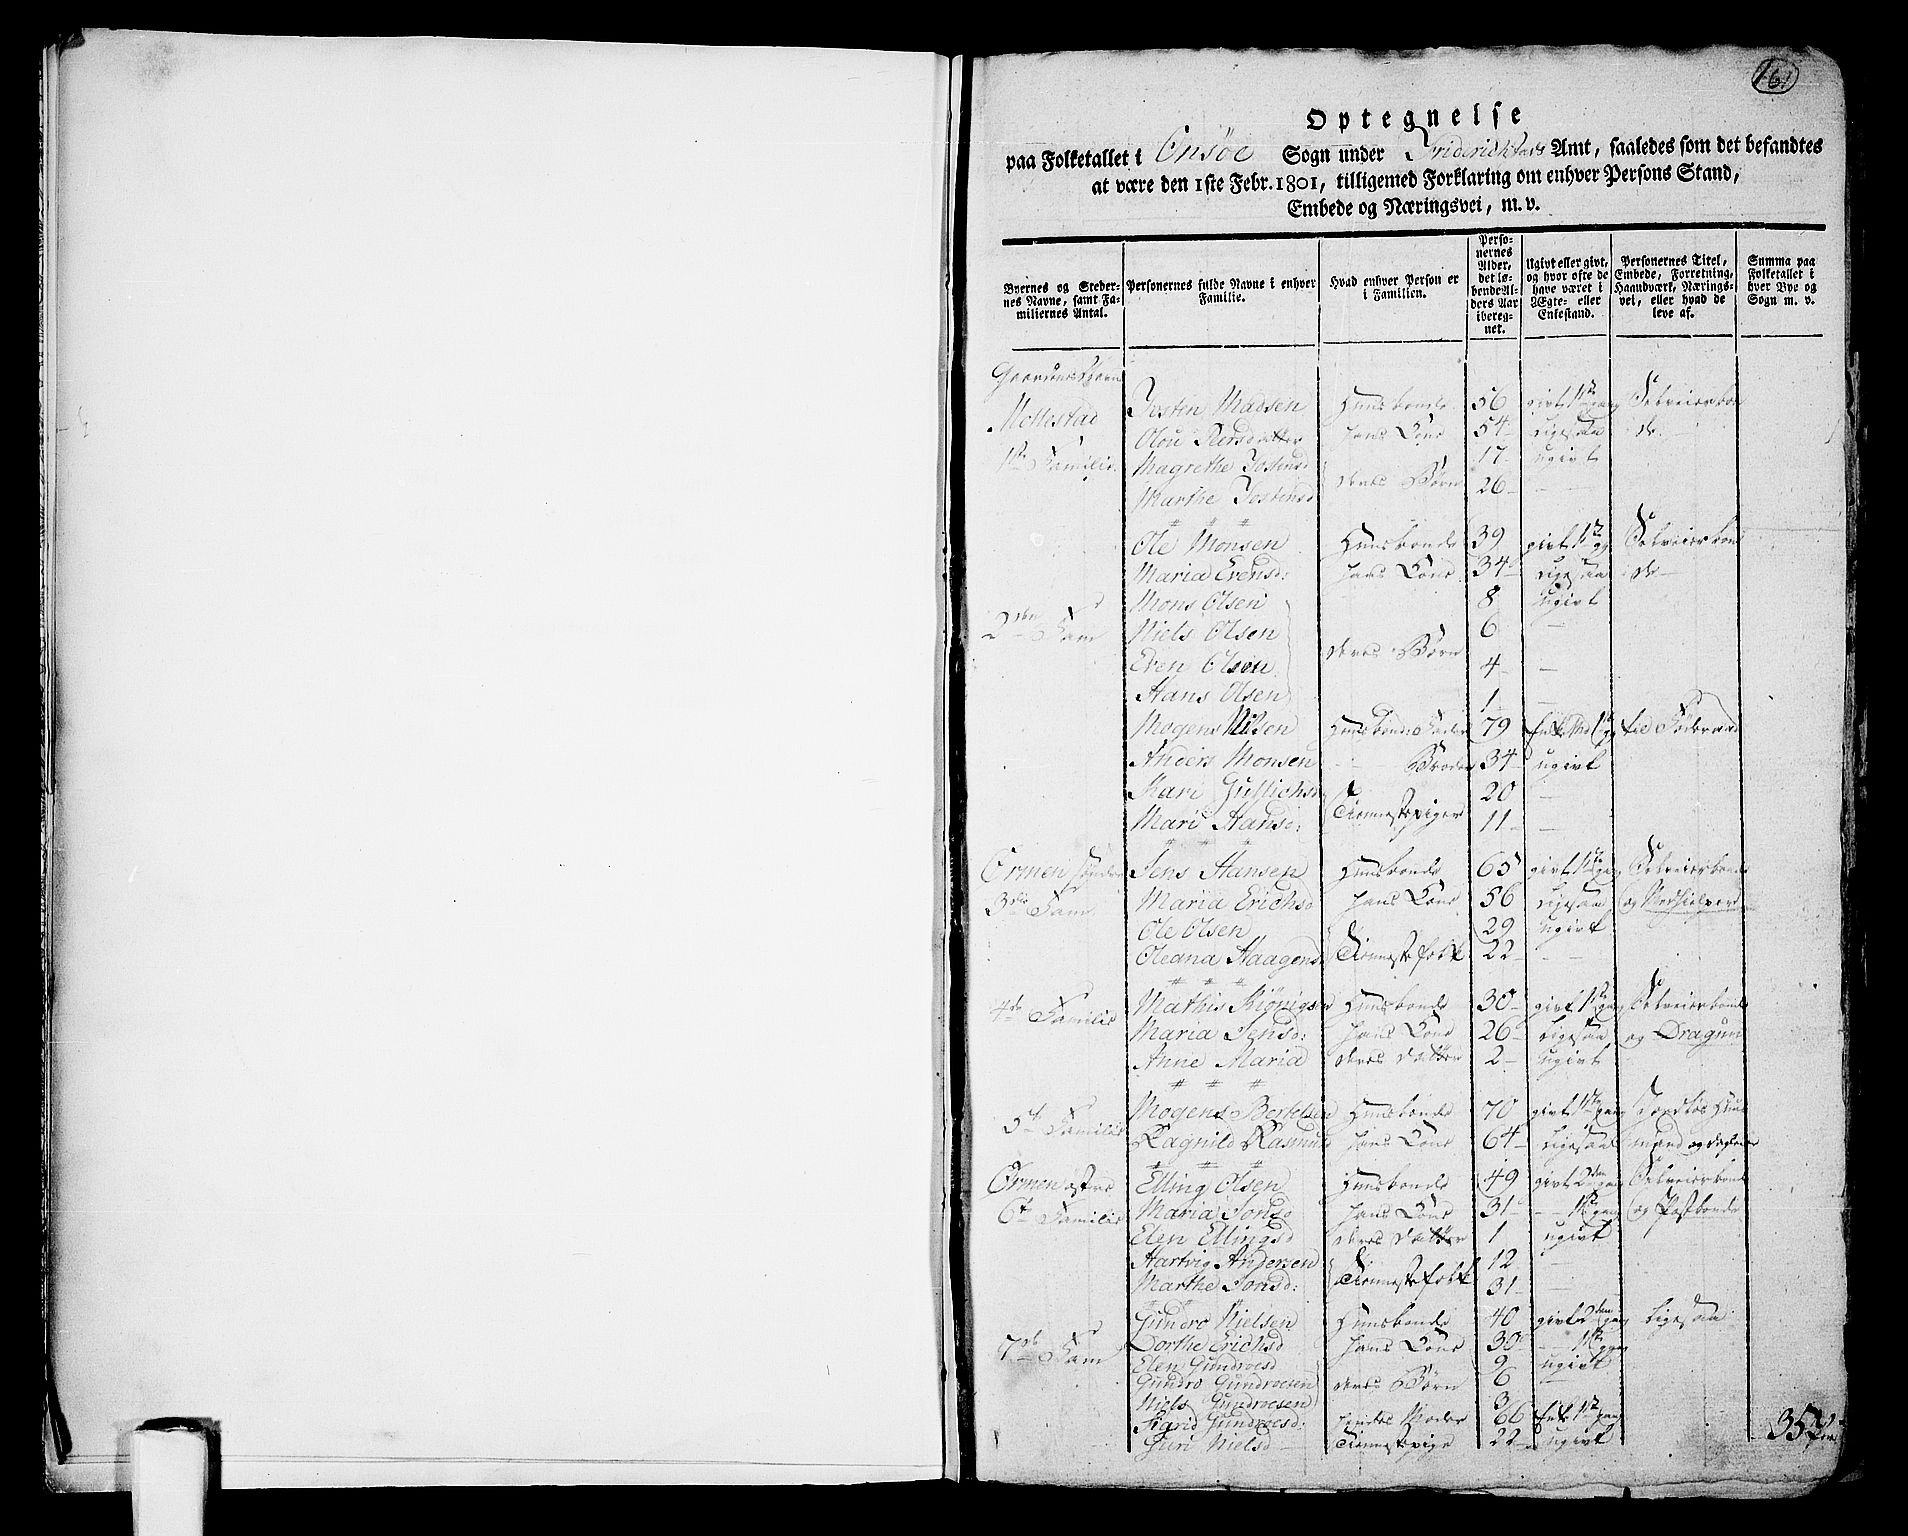 161
Optegnelse
paa Folketallet i Onsøe Sogn under Friderichstads Amt, saaledes som det befandtes
at være den 1ste Febr. 1801, tilligemed Forklaring om enhver Persons Stand,
Embede og Næringsvei, m. v.
Byernes og Stedernes Navne, samt Familiernes Antal.
Personernes fulde Navne i enhver Familie.
Hvad enhver Person er i Familien.
Personernes Alder, det løbende Alders Aar iberegnet.
Ugivt eller givt, og hvor ofte de have været i Ægte- eller Enkestand.
Personernes Titel, Embede, Forretning, Haandværk, Næringsvei, eller hvad de leve af.
Summa paa Folketallet i hver Bye og Sogn m. v.
Mellestad Josten Madsen Huusbonde 56 givt 1ste gang Selveierbon
Olou Persdatter hans Kone 54 ligesaa de
1ste Familie Magrethe Jostensd 17 ugivt
Marthe Jostensd deres Børn 26 —
Ole Monsen Huusbonde 39 givt 1ste gg Selveierbon
Maria Evensd: hans Kone 34 ligesaa de
Mons Olsen 8 ugivt
2den Fam Niels Olsen 6 —
Even Olsen deres Børn 4 —
Hans Olsen 1 —
Mogens Nilsen Huusbond: Fader 79
Anders Monsen Broder 34 ugivt
Kari Gullichsd 20 —
Mari Hansd: Tienestepiger 11 —
Ormen søndre Jens Hansen Huusbonde 65 givt 1ste gang Selveierbonde
3die Fam Maria Erichsd hans Kone 56 ligesaa og
Ole Olsen 29 ugivt
Oleana Haagensd. Tienestefolk 22 —
4de Familie Mathis Kiønigsen Huusbonde 30 givt 1ste gang Selveierbonde
Maria Jensd: hans Kone 26 ligesaa og Dragun
Anne Maria deres datter 2 ugivt
5te Familie Mogens Bertelsen Huusbonde 70 givt 1ste gang Jordløs Huus
Ragnild Rasmusd hans Kone 64 ligesaa mand og
Ormen østre Elling Olsen Huusbonde 49 givt 2den gang Selveierbonde
6te Familie Maria Jonsd hans Kone 31 — 1ste gang og Postbonde
Elen Ellingsd deres datter 1 ugivt
Hartvig Andersen 12 —
Marthe Jonsd: Tienestefolk 31 —
Gundro Nielsen Huusbonde 40 givt 2den gang ligesaa
7de Fam Dorthe Erichsd hans Kone 30 — 1ste gang
Elen Gundroesd 9 ugivt
Gundro Gundroesen deres Børn 6 —
Niels Gundroesen 3
Sigrid Gundroesd: hendes Moder 66 Enke 1ste gang
Guri Nielsd Tienestepige 22 ugivt
35